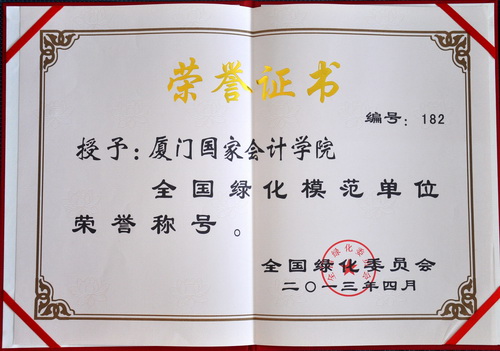 荣誉证书
编号：182
授予：厦门国家会计学院
全国绿化模范单位
荣誉称号。
全国绿化委员会
二〇一三年四月